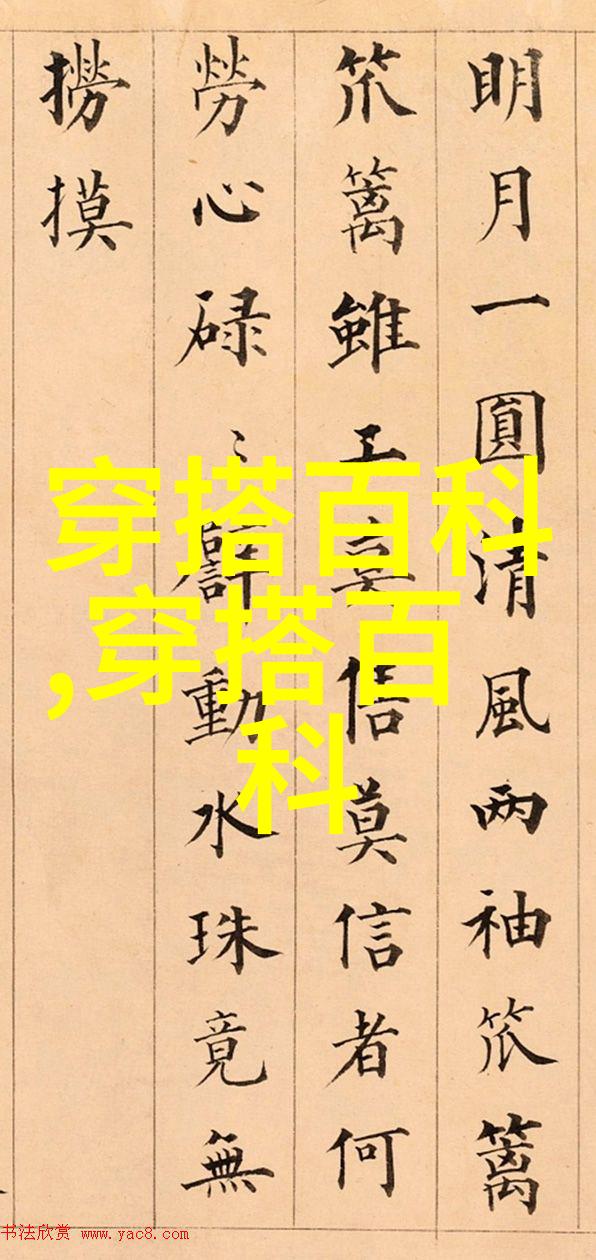 明月一圓清風两袖笊篱
笊篱雖信莫信者何
勞心碌〻動水珠竟無
撈摸
穿搭百科
,穿搭百
科
书法欣赏 www.yac8.com